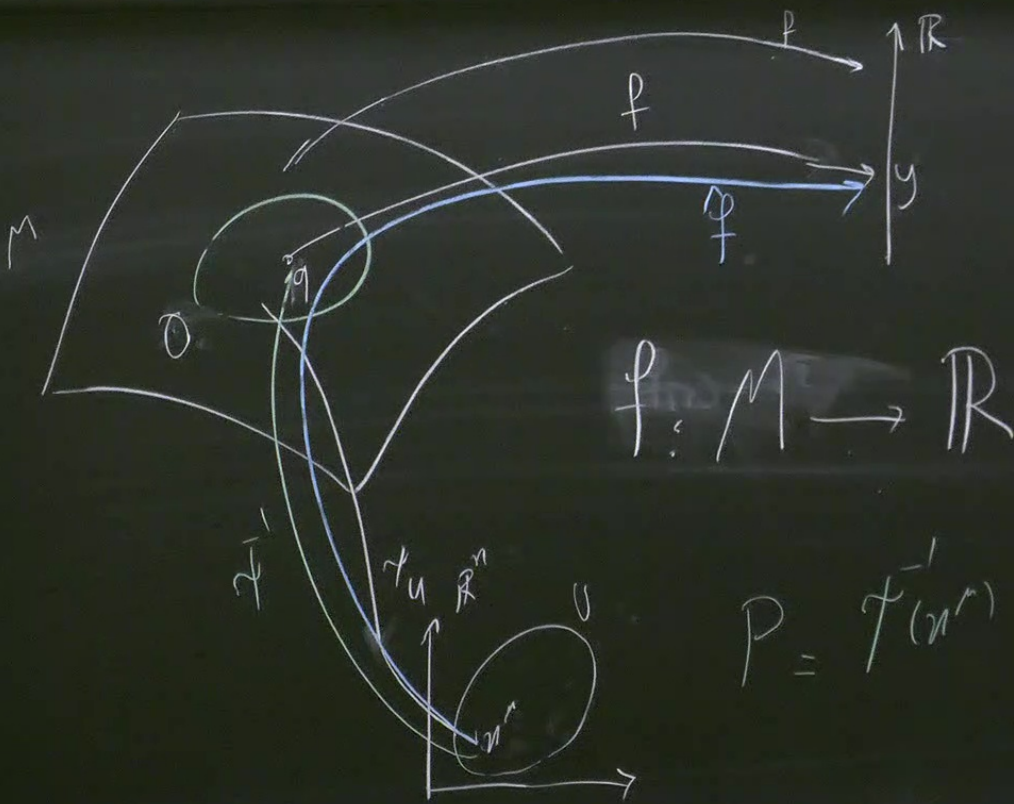 f
ℝ
f
y
f̂
M
q
O
f : M → ℝ
ψ⁻¹
ψ_U
ℝⁿ
U
P = ψ⁻¹(x^μ)
x^μ